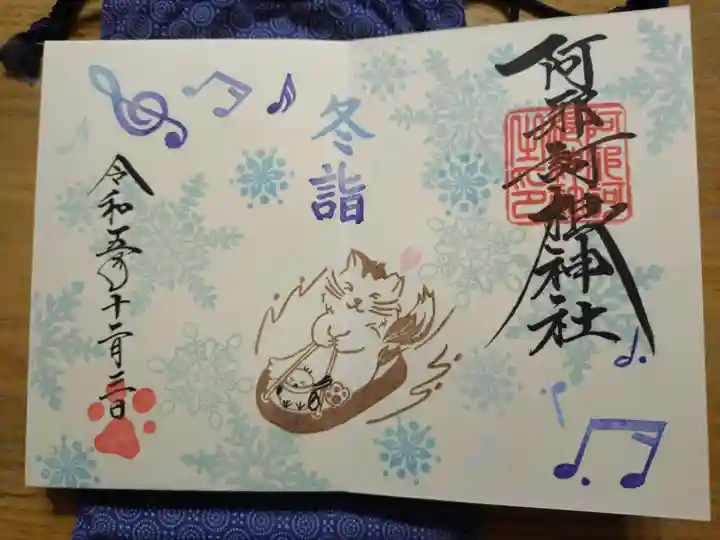 阿那訶根神社
冬詣
令和五年十二月二日